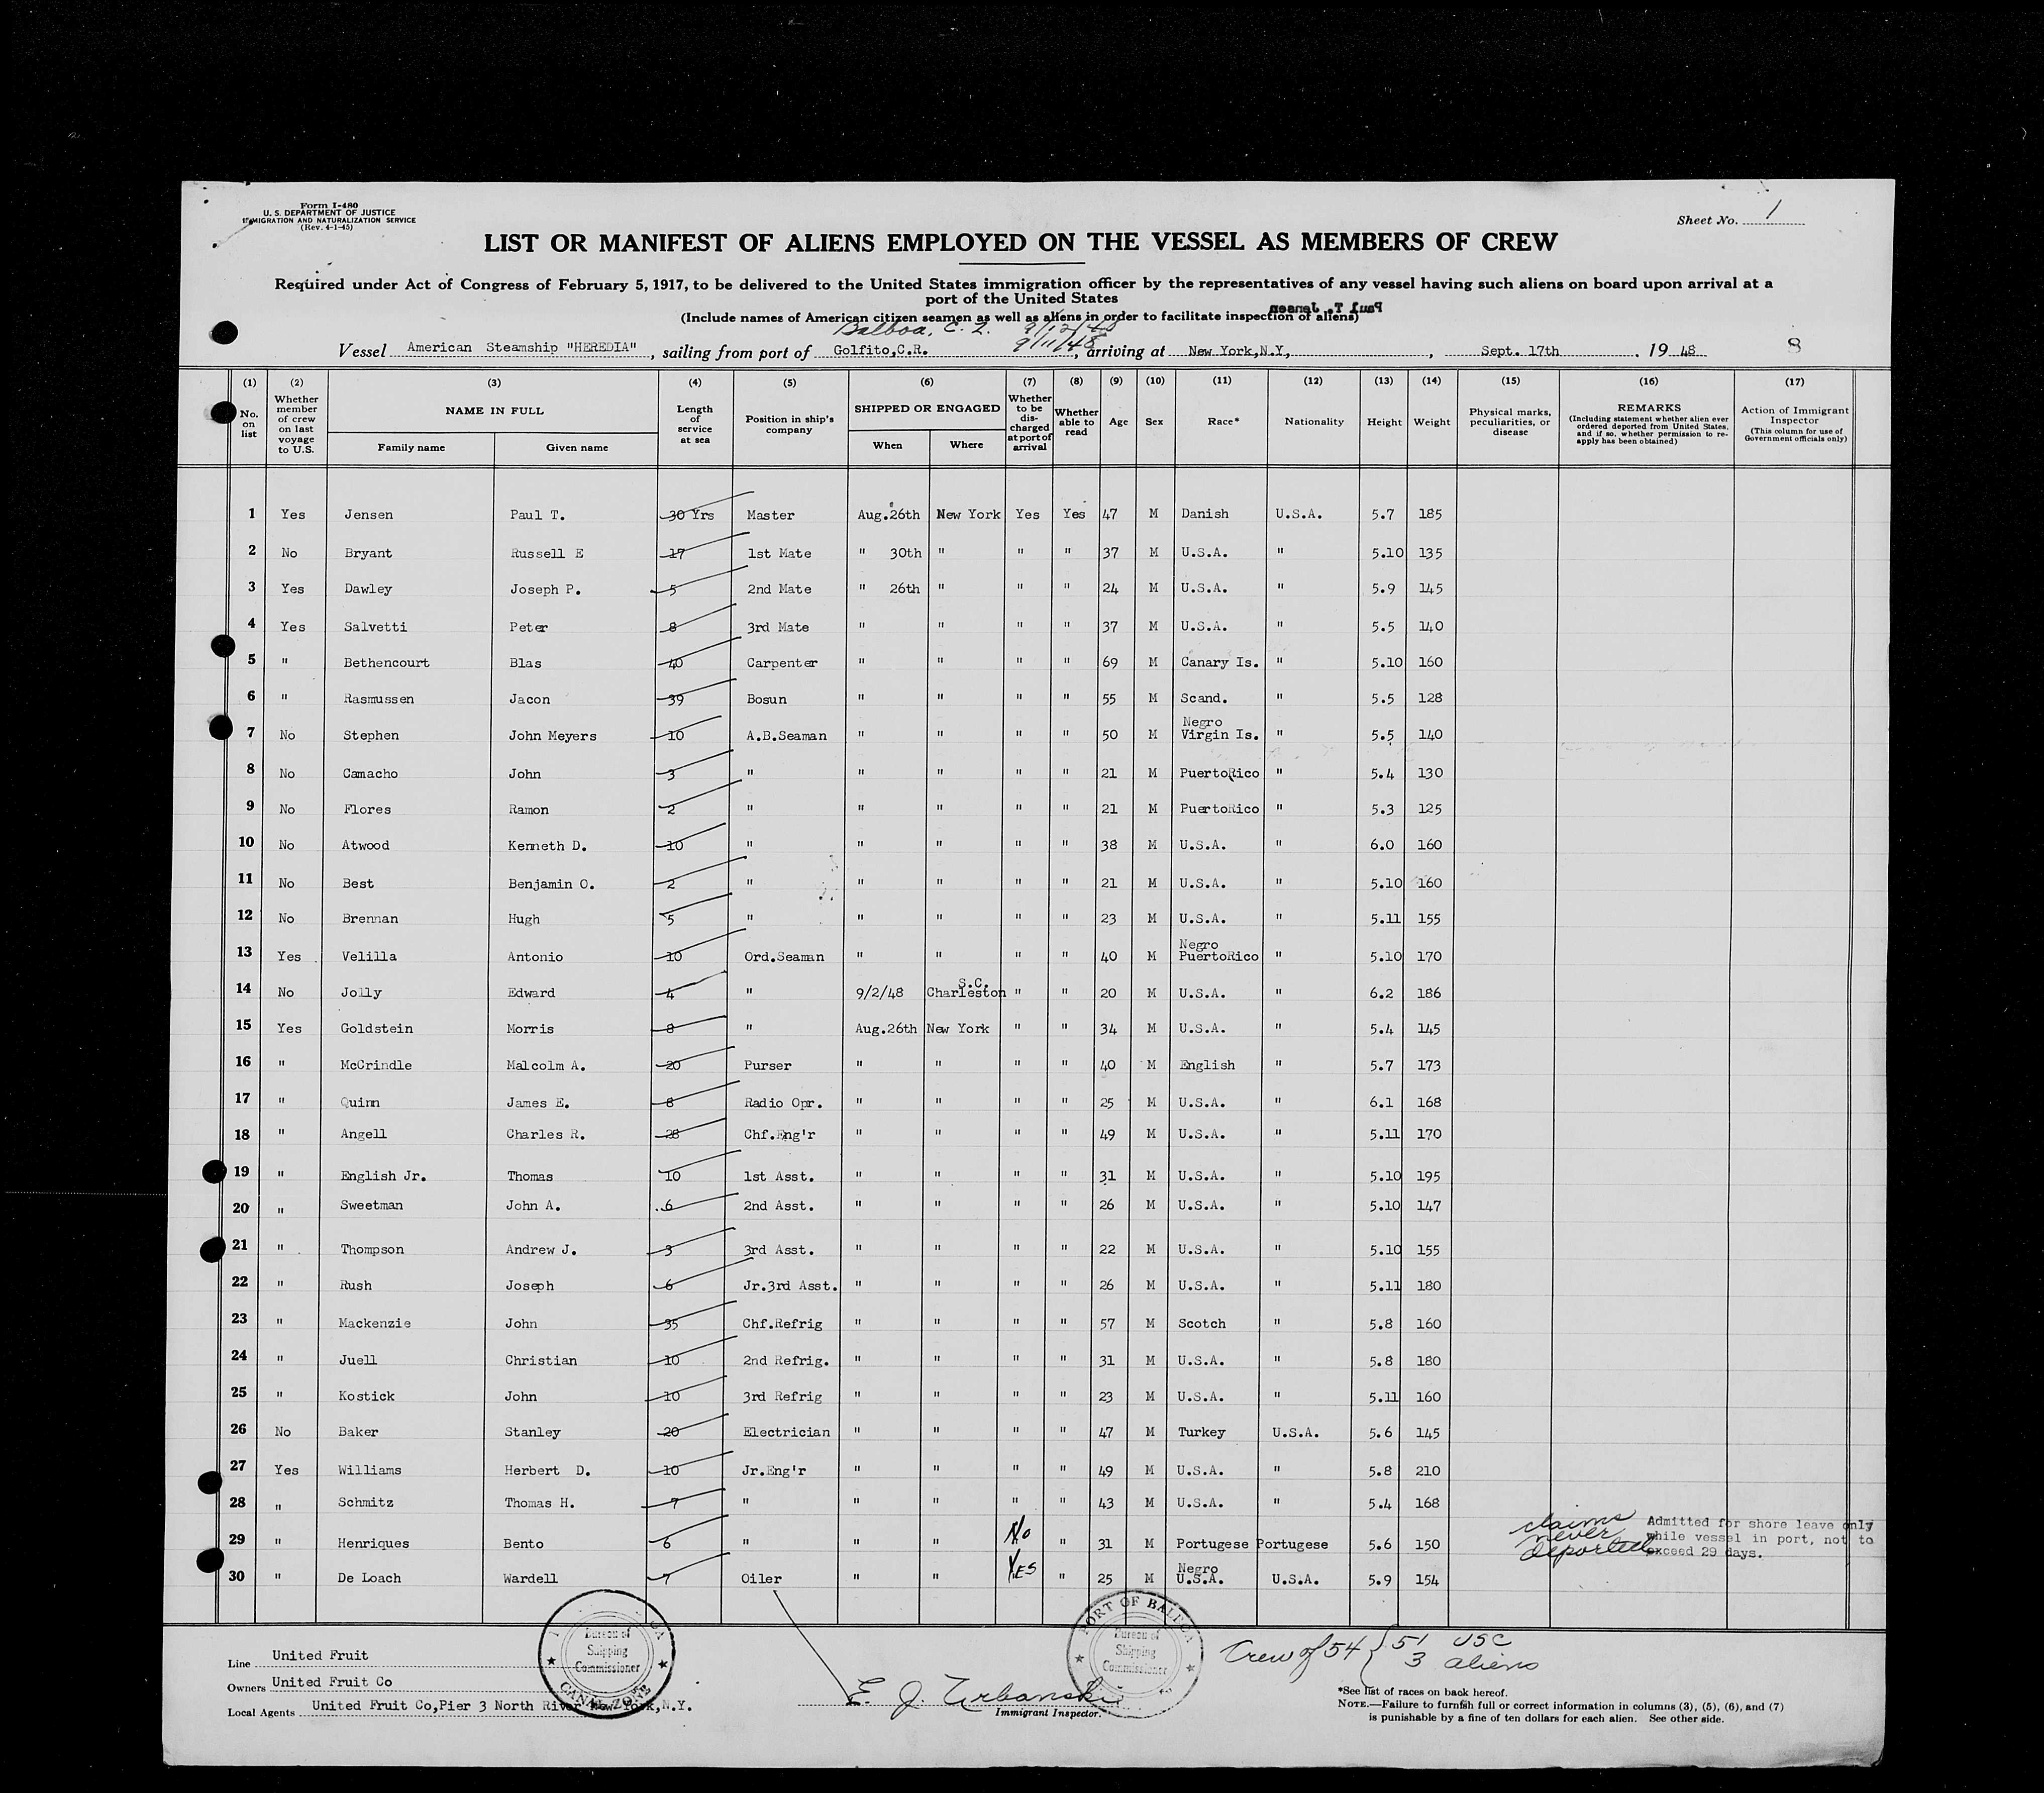 Form I-480
U. S. DEPARTMENT OF JUSTICE
IMMIGRATION AND NATURALIZATION SERVICE
(Rev. 4-1-45)
Sheet No. 1
LIST OR MANIFEST OF ALIENS EMPLOYED ON THE VESSEL AS MEMBERS OF CREW
Required under Act of Congress of February 5, 1917, to be delivered to the United States immigration officer by the representatives of any vessel having such aliens on board upon arrival at a
port of the United States
Paul T. Jensen
(Include names of American citizen seamen as well as aliens in order to facilitate inspection of aliens)
Balboa, C. Z. 9/12/48
Vessel American Steamship "HEREDIA", sailing from port of Golfito,C.R. 9/11/48, arriving at New York,N.Y, , Sept. 17th , 19 48 8
(1) (2) (3) (4) (5) (6) (7) (8) (9) (10) (11) (12) (13) (14) (15) (16) (17)
No. on list
Whether member of crew on last voyage to U.S.
NAME IN FULL
Family name Given name
Length of service at sea
Position in ship's company
SHIPPED OR ENGAGED
When Where
Whether to be discharged at port of arrival
Whether able to read
Age Sex Race* Nationality Height Weight
Physical marks, peculiarities, or disease
REMARKS
(Including statement whether alien ever ordered deported from United States, and if so, whether permission to re-apply has been obtained)
Action of Immigrant Inspector
(This column for use of Government officials only)
1 Yes Jensen Paul T. 30 Yrs Master Aug.26th New York Yes Yes 47 M Danish U.S.A. 5.7 185
2 No Bryant Russell E 17 1st Mate " 30th " " " 37 M U.S.A. " 5.10 135
3 Yes Dawley Joseph P. 5 2nd Mate " 26th " " " 24 M U.S.A. " 5.9 145
4 Yes Salvetti Peter 8 3rd Mate " " " " 37 M U.S.A. " 5.5 140
5 " Bethencourt Blas 40 Carpenter " " " " 69 M Canary Is. " 5.10 160
6 " Rasmussen Jacon 39 Bosun " " " " 55 M Scand. " 5.5 128
7 No Stephen John Meyers 10 A.B.Seaman " " " " 50 M Negro Virgin Is. " 5.5 140
8 No Camacho John 3 " " " " " 21 M PuertoRico " 5.4 130
9 No Flores Ramon 2 " " " " " 21 M PuertoRico " 5.3 125
10 No Atwood Kenneth D. 10 " " " " " 38 M U.S.A. " 6.0 160
11 No Best Benjamin O. 2 " " " " " 21 M U.S.A. " 5.10 160
12 No Brennan Hugh 5 " " " " " 23 M U.S.A. " 5.11 155
13 Yes Velilla Antonio 10 Ord.Seaman " " " " 40 M Negro PuertoRico " 5.10 170
14 No Jolly Edward 4 " 9/2/48 Charleston S.C. " " 20 M U.S.A. " 6.2 186
15 Yes Goldstein Morris 8 " Aug.26th New York " " 34 M U.S.A. " 5.4 145
16 " McCrindle Malcolm A. 20 Purser " " " " 40 M English " 5.7 173
17 " Quinn James E. 8 Radio Opr. " " " " 25 M U.S.A. " 6.1 168
18 " Angell Charles R. 28 Chf.Eng'r " " " " 49 M U.S.A. " 5.11 170
19 " English Jr. Thomas 10 1st Asst. " " " " 31 M U.S.A. " 5.10 195
20 " Sweetman John A. 6 2nd Asst. " " " " 26 M U.S.A. " 5.10 147
21 " Thompson Andrew J. 3 3rd Asst. " " " " 22 M U.S.A. " 5.10 155
22 " Rush Joseph 6 Jr.3rd Asst. " " " " 26 M U.S.A. " 5.11 180
23 " Mackenzie John 35 Chf.Refrig " " " " 57 M Scotch " 5.8 160
24 " Juell Christian 10 2nd Refrig. " " " " 31 M U.S.A. " 5.8 180
25 " Kostick John 10 3rd Refrig " " " " 23 M U.S.A. " 5.11 160
26 No Baker Stanley 20 Electrician " " " " 47 M Turkey U.S.A. 5.6 145
27 Yes Williams Herbert D. 10 Jr.Eng'r " " " " 49 M U.S.A. " 5.8 210
28 " Schmitz Thomas H. 7 " " " " " 43 M U.S.A. " 5.4 168
29 " Henriques Bento 6 " " " No " 31 M Portugese Portugese 5.6 150 claims never deported Admitted for shore leave only while vessel in port, not to exceed 29 days.
30 " De Loach Wardell 7 Oiler " " YES " 25 M Negro U.S.A. U.S.A. 5.9 154
Line United Fruit
Owners United Fruit Co
Local Agents United Fruit Co,Pier 3 North River New York,N.Y.
Bureau of Shipping Commissioner
CANAL ZONE
PORT OF BALBOA
Bureau of Shipping Commissioner
E. J. Urbanski
Immigrant Inspector.
Crew of 54 { 51 USC
3 aliens
*See list of races on back hereof.
NOTE.—Failure to furnish full or correct information in columns (3), (5), (6), and (7)
is punishable by a fine of ten dollars for each alien. See other side.